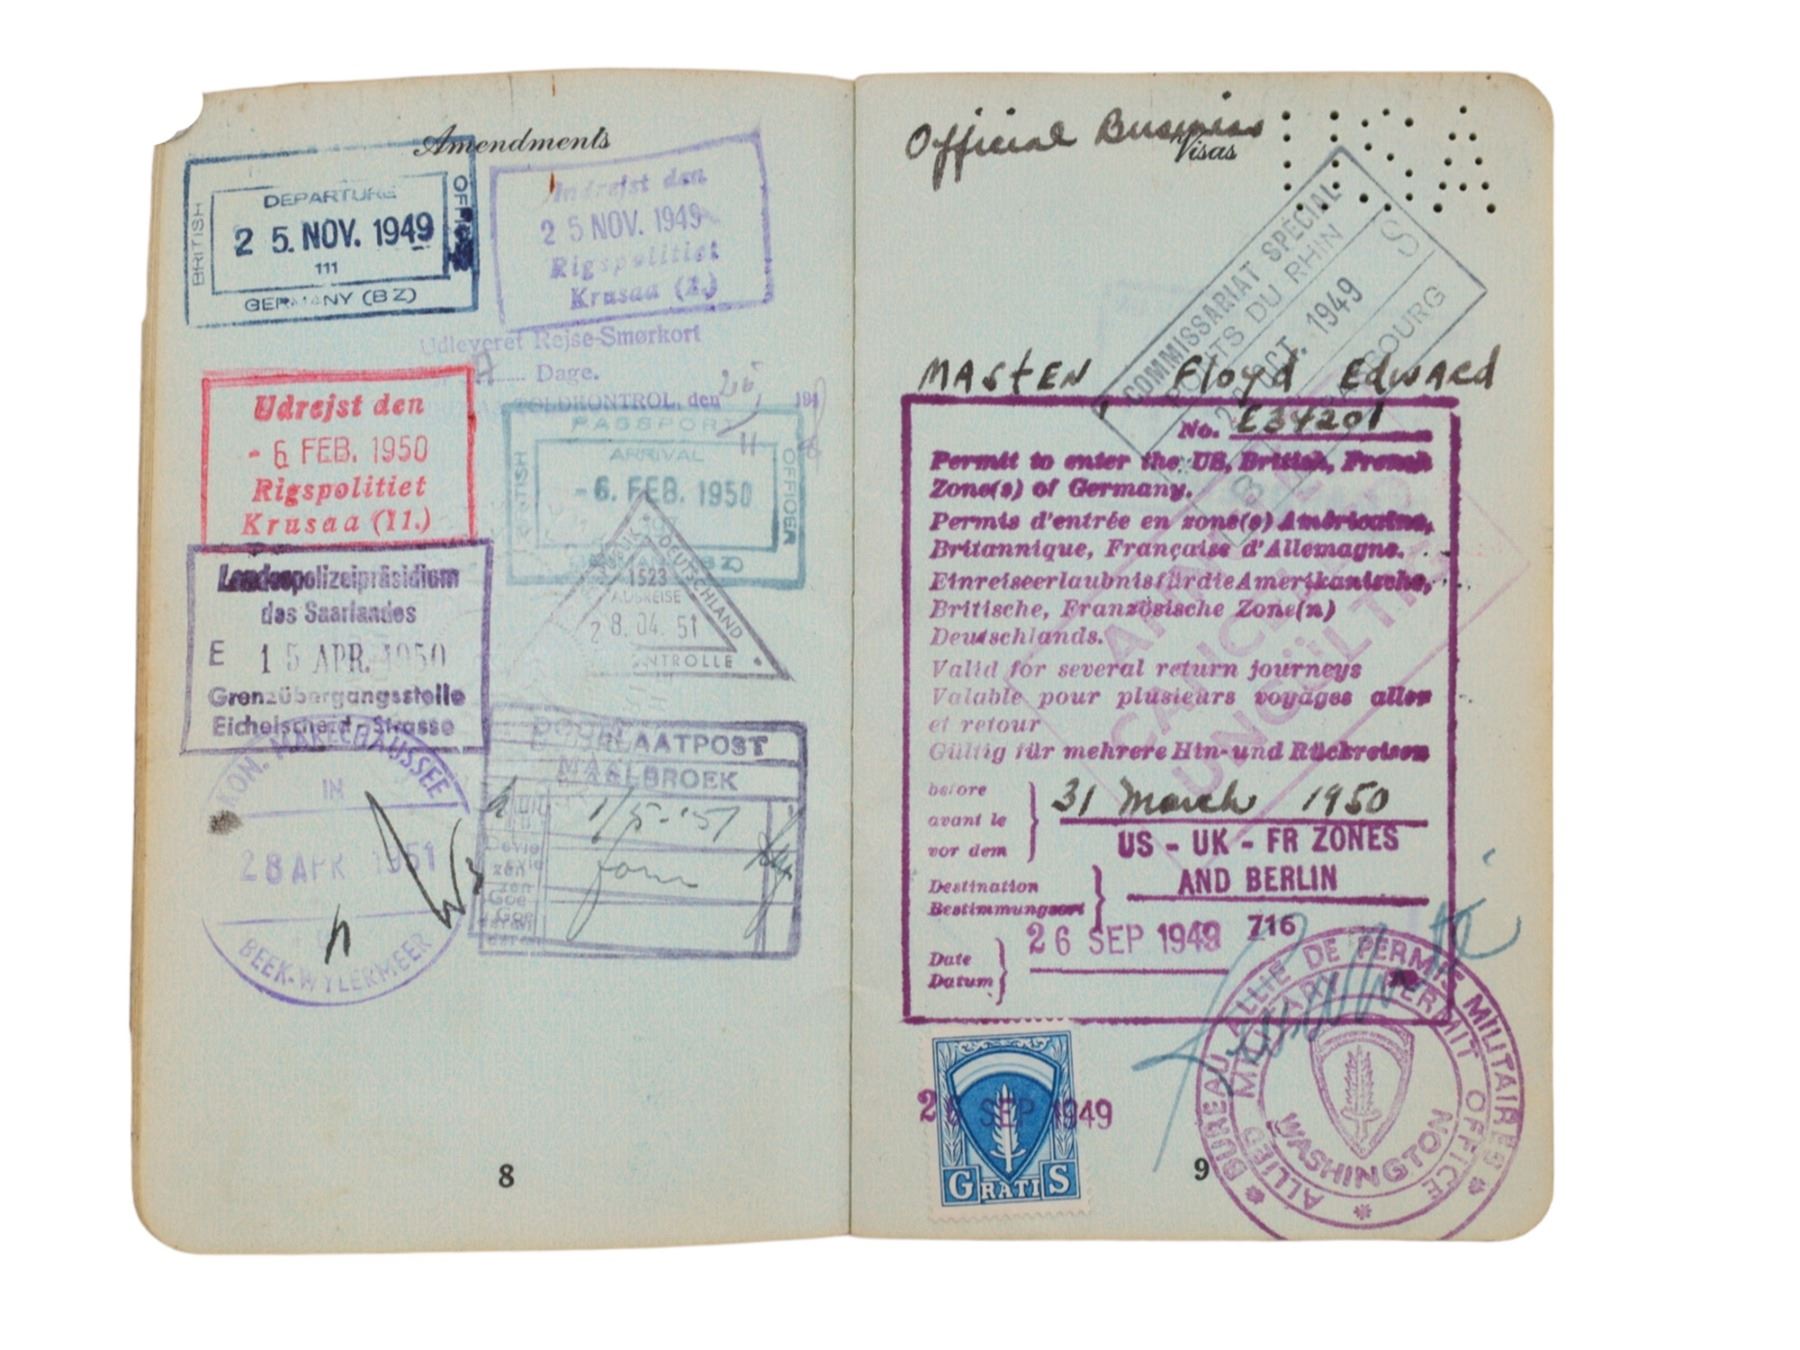 Amendments
DEPARTURE
BRITISH
OFFICER
25. NOV. 1949
111
GERMANY (BZ)
Indrejst den
25 NOV. 1949
Rigspolitiet
Krusaa (2.)
Udleveret Rejse-Smørkort
Dage.
TOLDKONTROL, den
Udrejst den
- 6 FEB. 1950
Rigspolitiet
Krusaa (11.)
PASSPORT
ARRIVAL
BRITISH
OFFICER
-6. FEB. 1950
Landespolizeipräsidium
des Saarlandes
E 15 APR. 1950
Grenzübergangsstelle
Eichelscheid-Strasse
DEUTSCHLAND
1523
AUSREISE
28.04.51
KON. MARECHAUSSEE
IN
28 APR 1951
BEEK-WYLERMEER
MAALBROEK
1/5-'51
8
Official Business
Visas
COMMISSARIAT SPÉCIAL
PONTS DU RHIN
OCT. 1949
S
MASTEN Floyd Edward
No. E34201
Permit to enter the US, British, French
Zone(s) of Germany.
Permis d'entrée en zone(s) Américaine,
Britannique, Française d'Allemagne.
Einreiseerlaubnis für die Amerikanische,
Britische, Französische Zone(n)
Deutschlands.
Valid for several return journeys
Valable pour plusieurs voyages aller
et retour
Gültig für mehrere Hin- und Rückreisen
before
avant le
vor dem
31 March 1950
US - UK - FR ZONES
AND BERLIN
Destination
Bestimmungsort
26 SEP 1949 716
Date
Datum
CANCELLED
UNGÜLTIG
BUREAU ALLIE DE PERMIS MILITAIRES
ALLIED MILITARY PERMIT OFFICE
WASHINGTON
26 SEP 1949
GRATIS
9